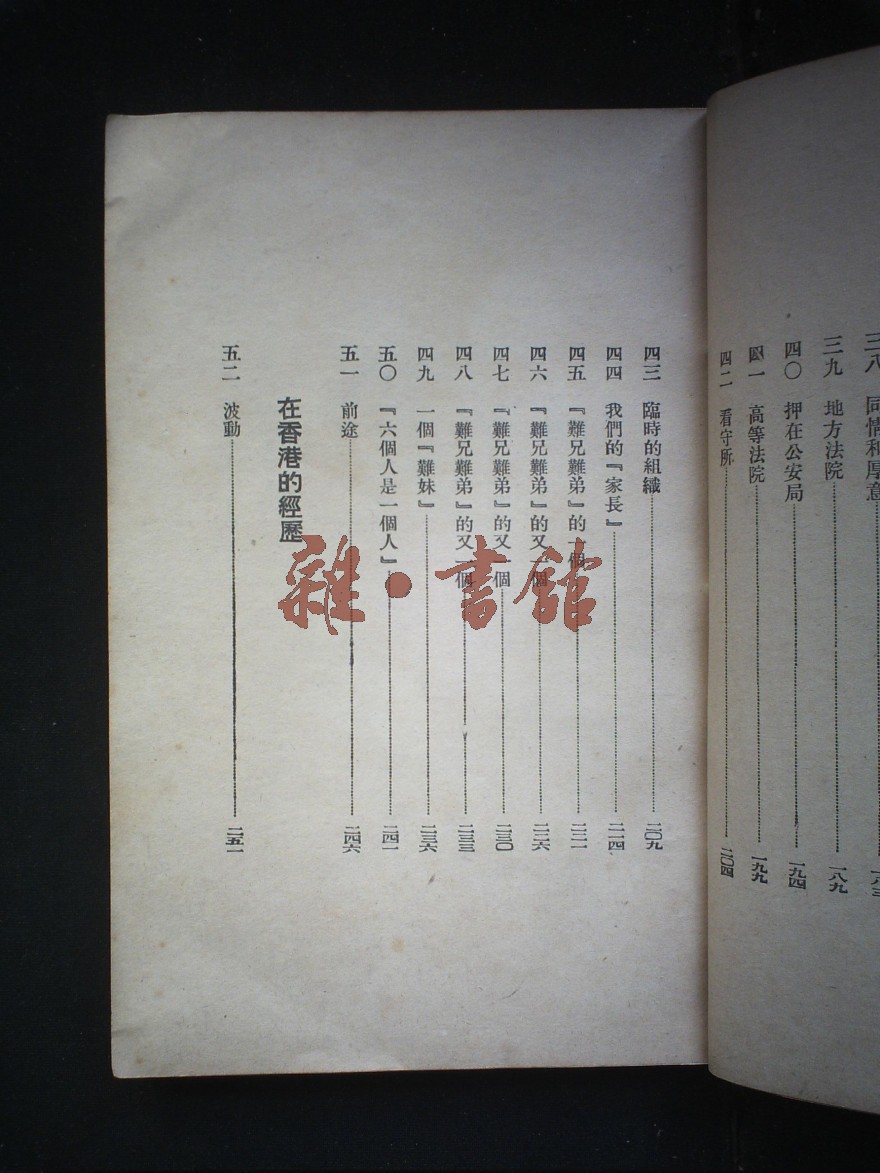 三八 同情和厚意 一八三
三九 地方法院 一八九
四〇 押在公安局 一九四
四一 高等法院 一九九
四二 看守所 二〇四
四三 臨時的組織 二〇九
四四 我們的『家長』 二一四
四五 『難兄難弟』的一個 二二一
四六 『難兄難弟』的又一個 二二六
四七 『難兄難弟』的又一個 二三〇
四八 『難兄難弟』的又一個 二三三
四九 一個『難妹』 二三六
五〇 『六個人是一個人』 二四一
五一 前途 二四六
在香港的經歷
五二 波動 二五一
雜·書館